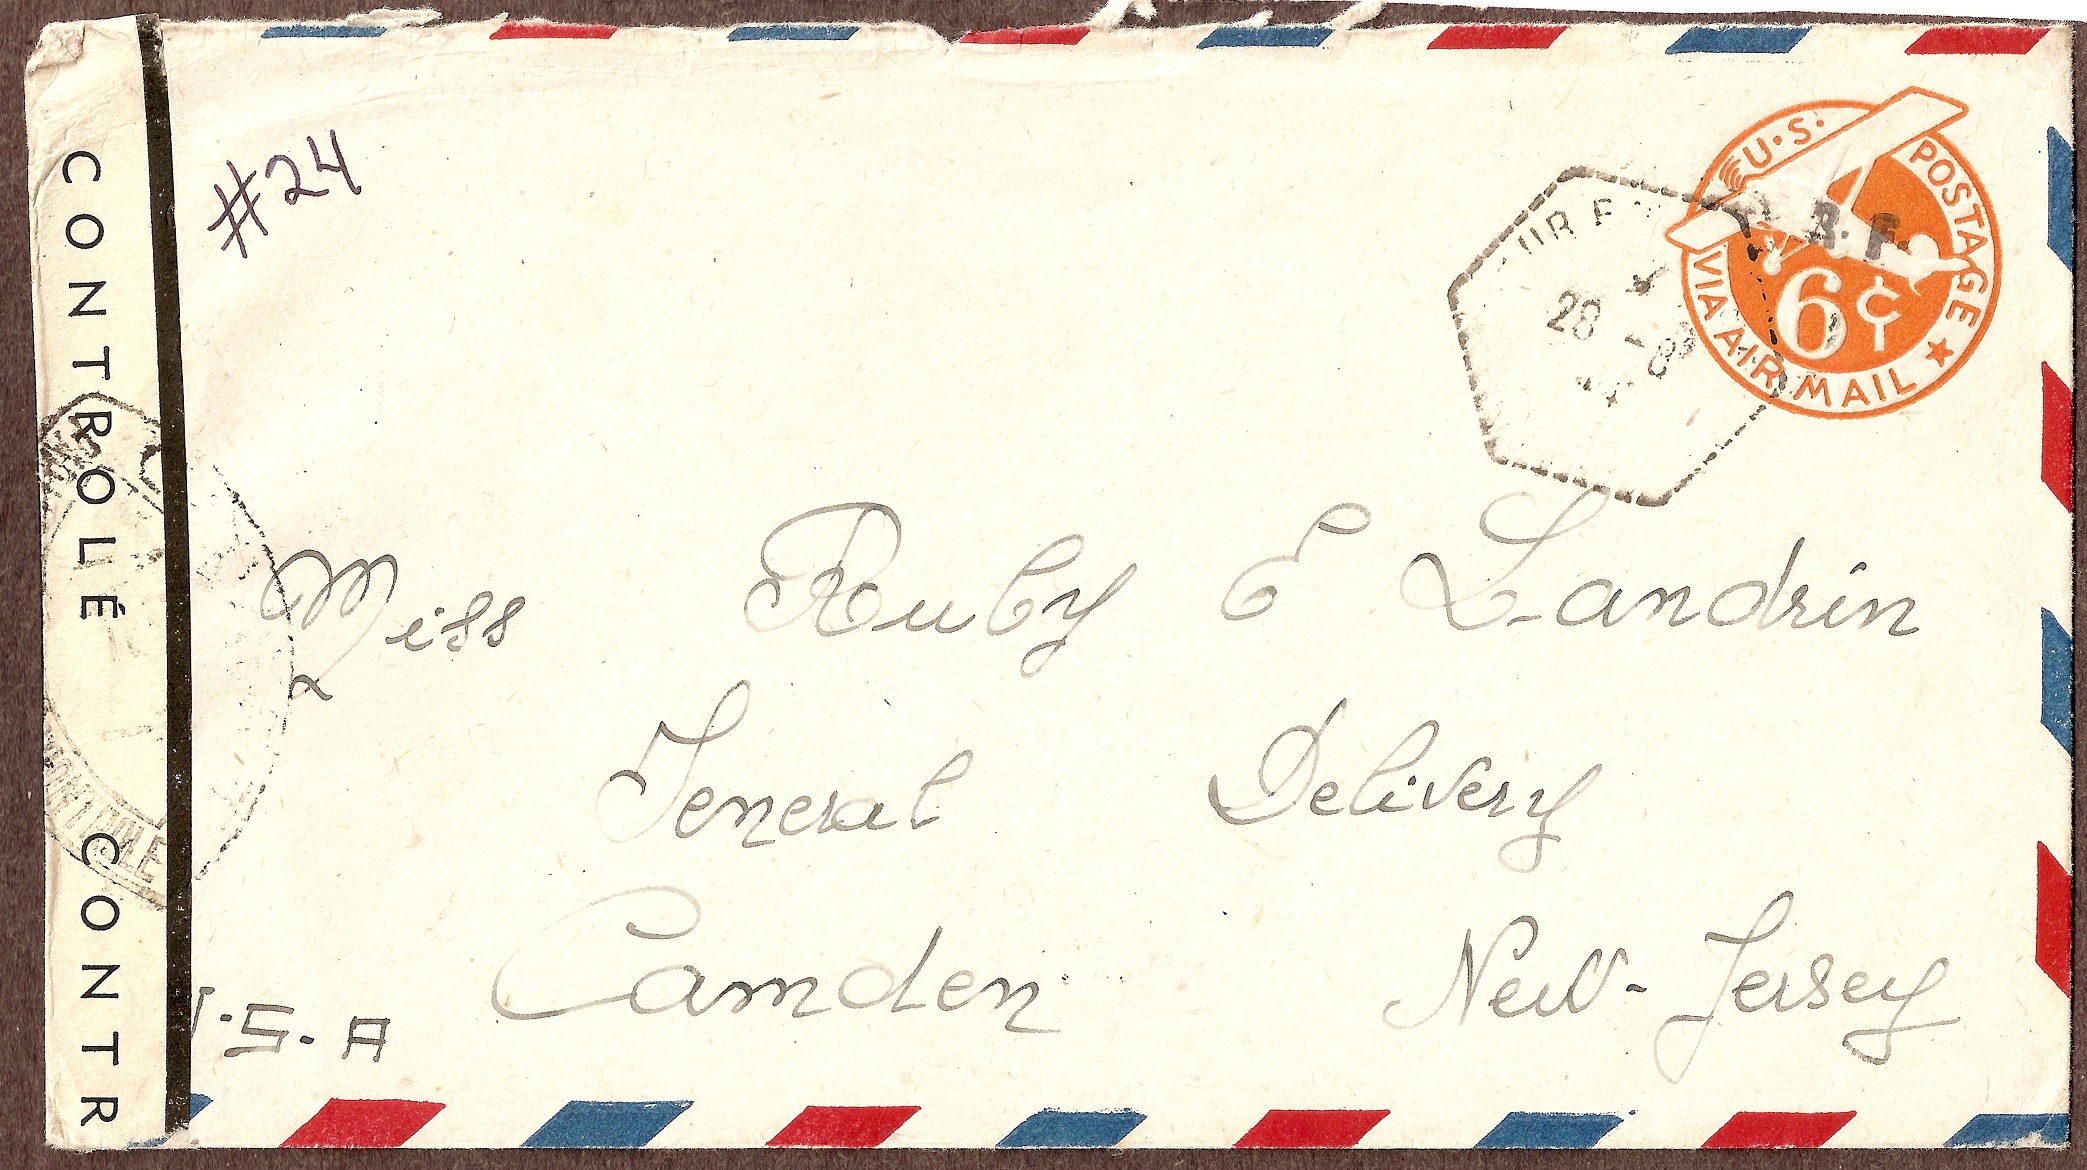 #24
U.S. POSTAGE
R.F.
6¢
VIA AIR MAIL
28 -8
CONTROLÉ CONTR
CONTROLE
Miss Ruby E Landrin
General Delivery
Camden New-Jersey
.S.A